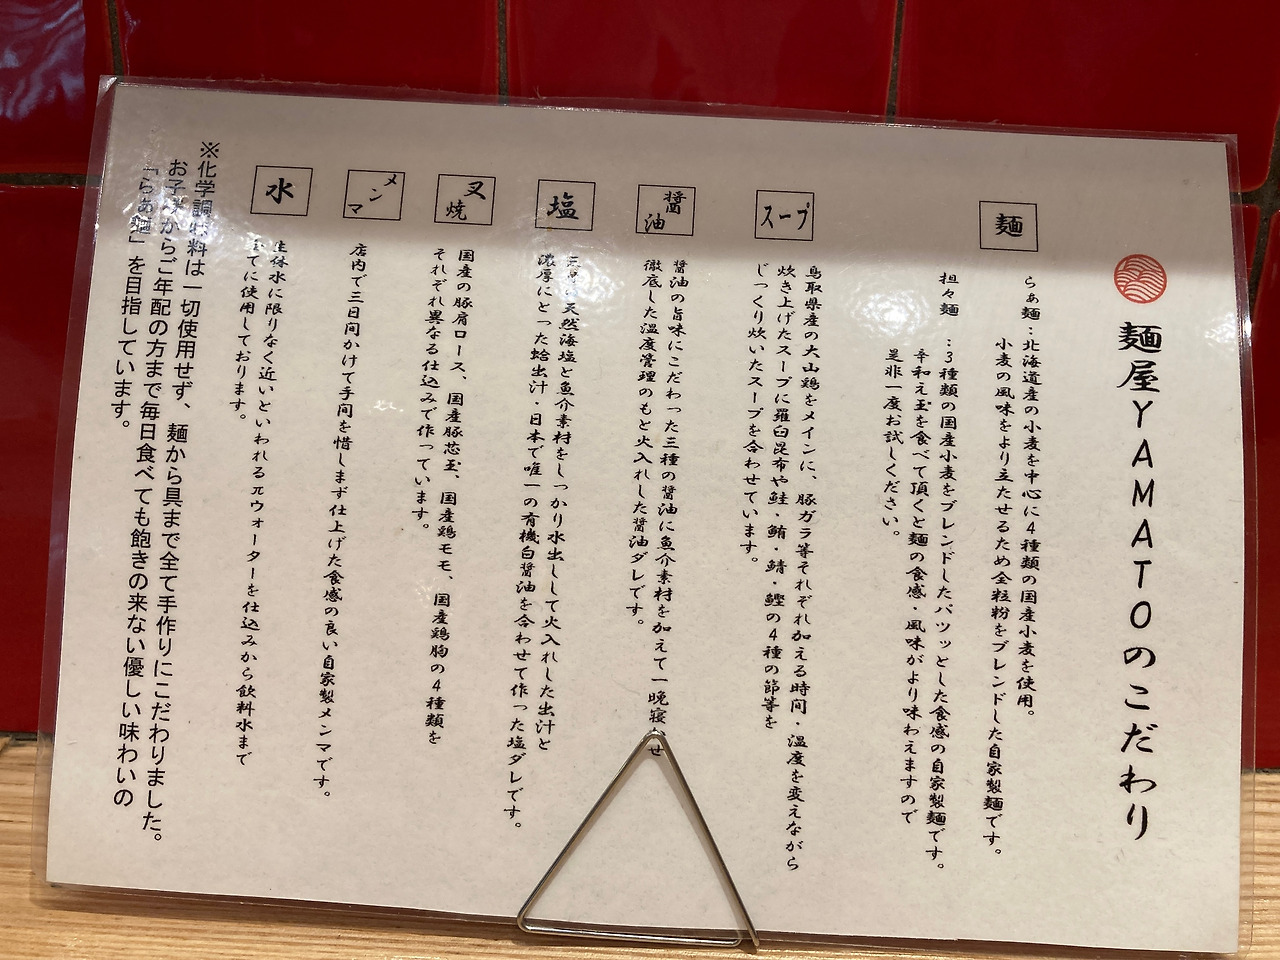 麺屋YAMATOのこだわり
麺
らぁ麺：北海道産の小麦を中心に4種類の国産小麦を使用。
小麦の風味をより立たせるため全粒粉をブレンドした自家製麺です。
担々麺：3種類の国産小麦をブレンドしたパツッとした食感の自家製麺です。
辛和え玉を食べて頂くと麺の食感・風味がより味わえますので
是非一度お試しください。
スープ
鳥取県産の大山鶏をメインに、豚ガラ等それぞれ加える時間・温度を変えながら
炊き上げたスープに羅臼昆布や鮭・鮪・鯖・鰹の4種の節等を
じっくり炊いたスープを合わせています。
醤油
醤油の旨味にこだわった三種の醤油に魚介素材を加えて一晩寝せ
徹底した温度管理のもと火入れした醤油ダレです。
塩
天然海塩と魚介素材をしっかり水出しして火入れした出汁と
濃厚にとった蛤出汁・日本で唯一の有機白醤油を合わせて作った塩ダレです。
叉焼
国産の豚肩ロース、国産豚芯玉、国産鶏モモ、国産鶏胸の4種類を
それぞれ異なる仕込みで作っています。
メンマ
店内で三日間かけて手間を惜しまず仕上げた食感の良い自家製メンマです。
水
生体水に限りなく近いといわれるπウォーターを仕込みから飲料水まで
てに使用しております。
※化学調味料は一切使用せず、麺から具まで全て手作りにこだわりました。
お子様からご年配の方まで毎日食べても飽きの来ない優しい味わいの
「らぁ麺」を目指しています。